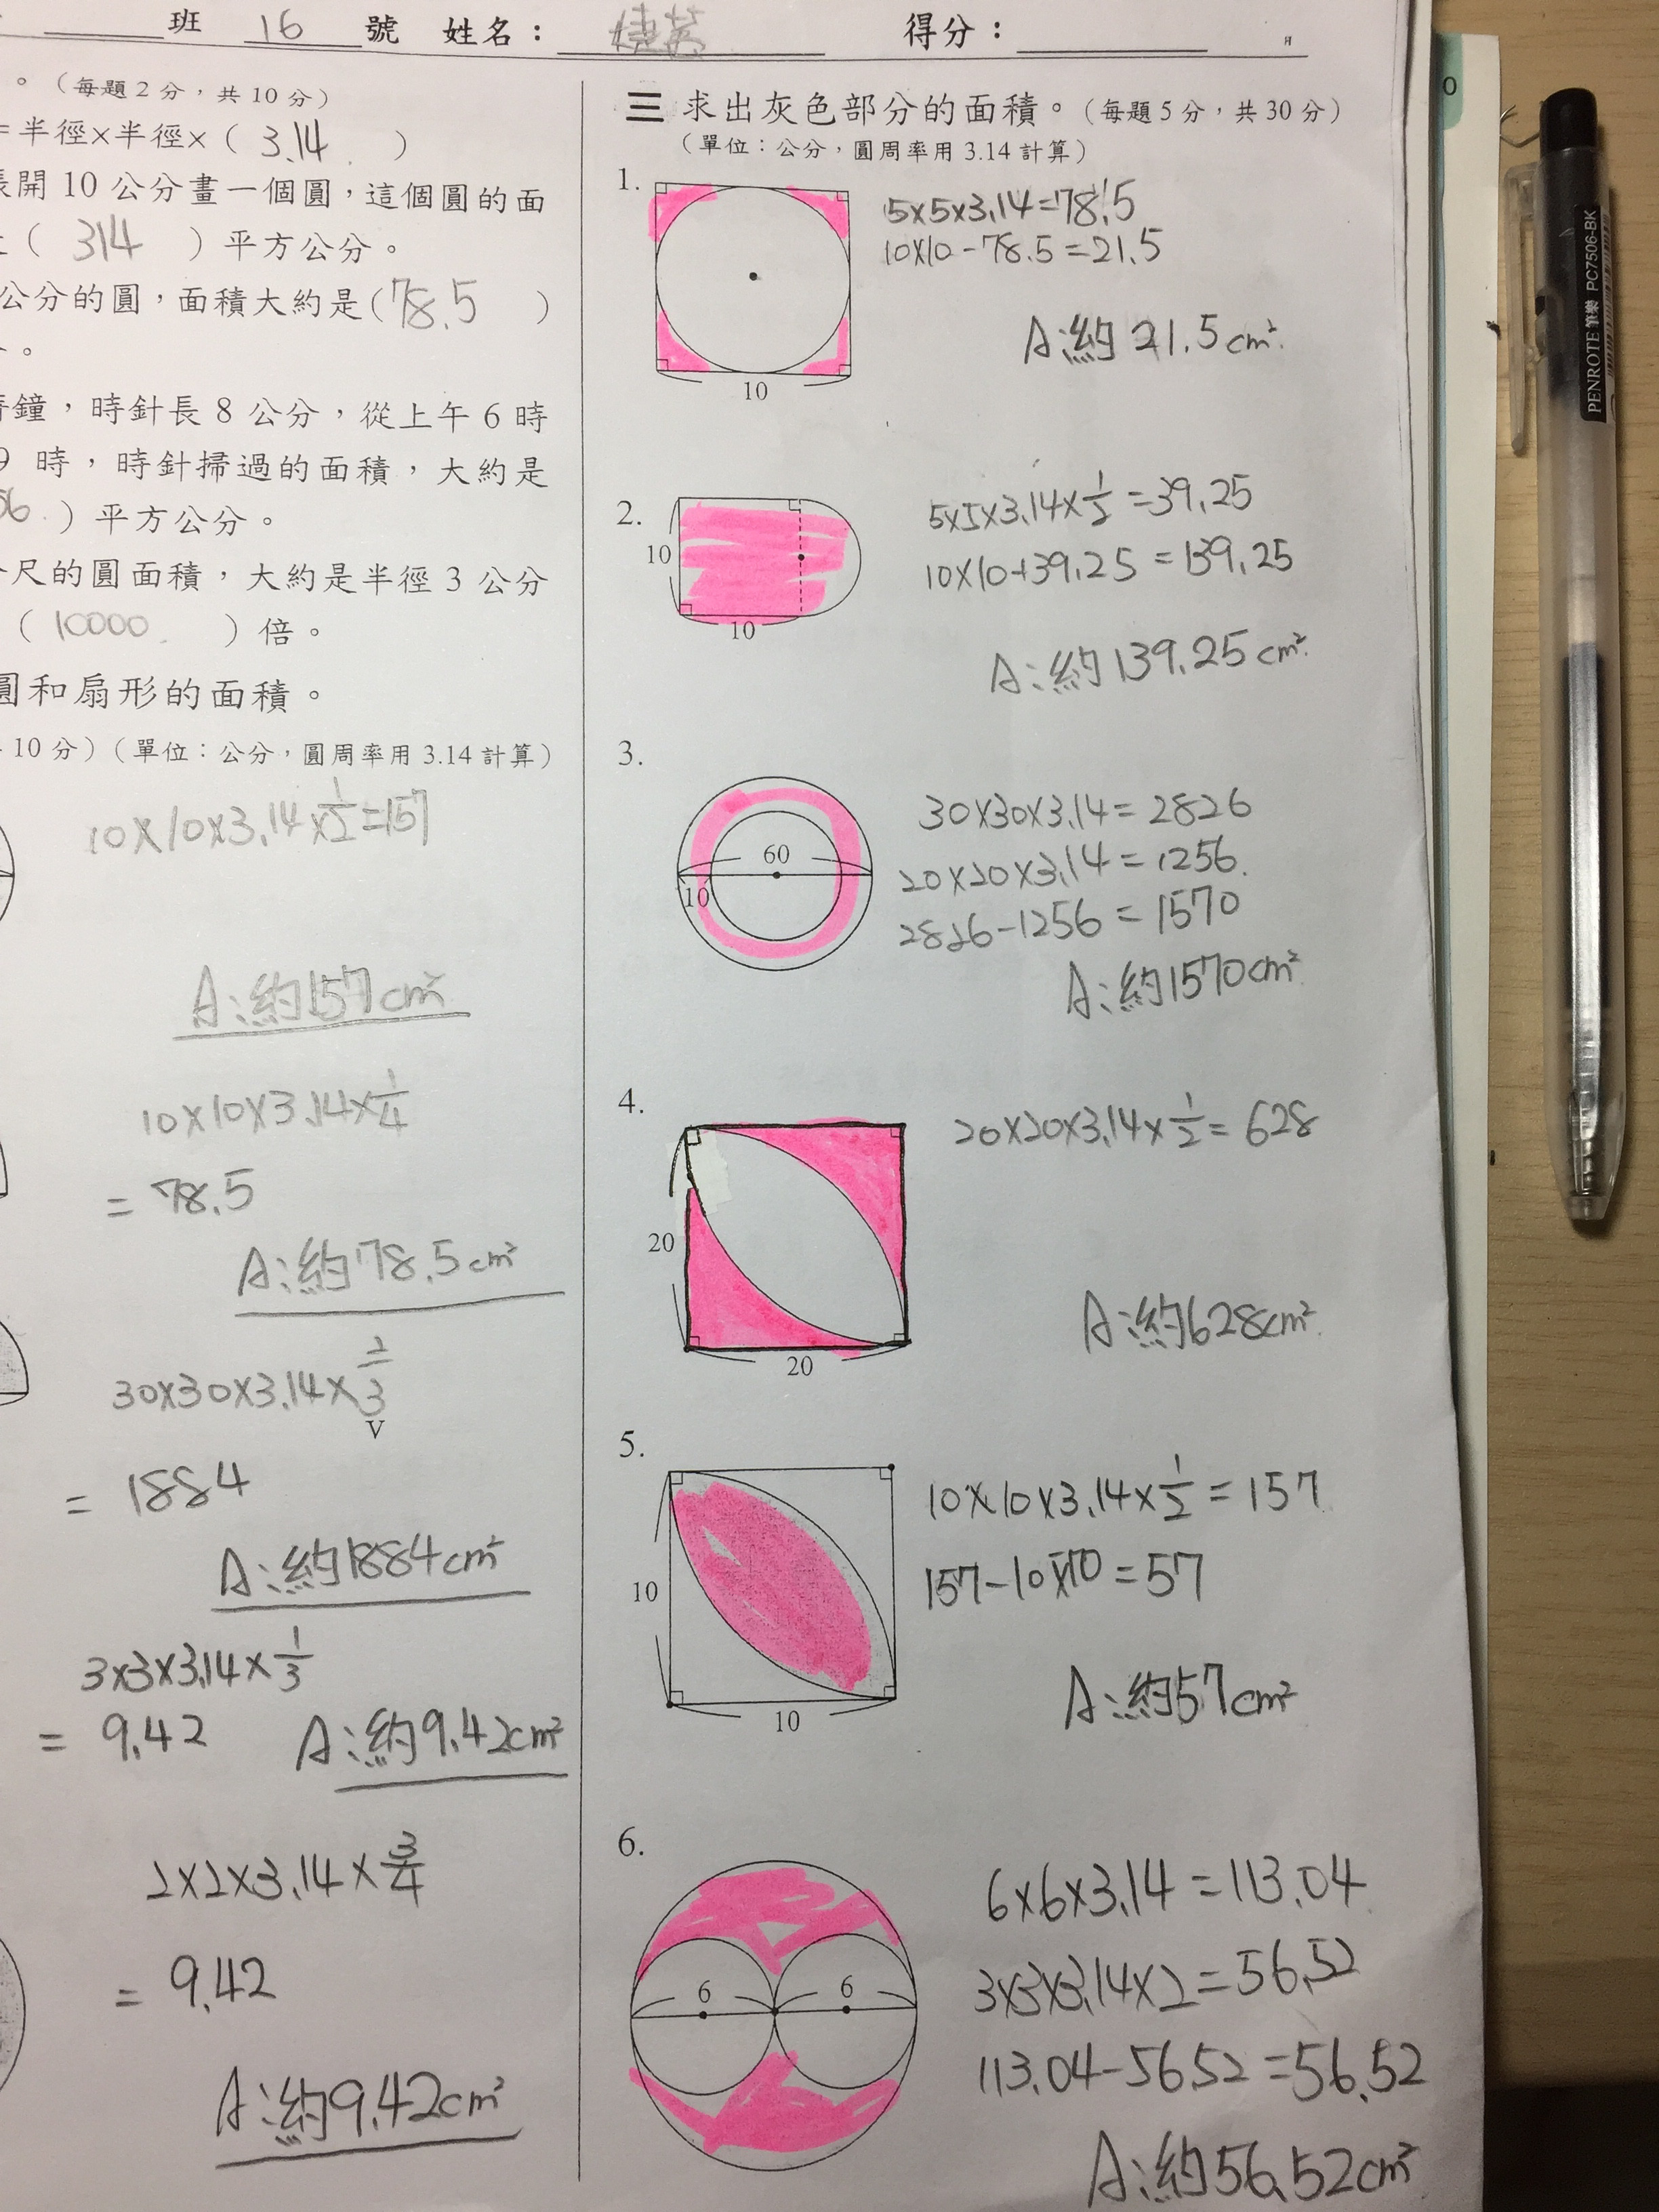 班 16 號 姓名： 婕英 得分：
。（每題2分，共10分）
=半徑×半徑×（ 3.14 ）
開10公分畫一個圓，這個圓的面
（ 314 ）平方公分。
公分的圓，面積大約是（78.5 ）
。
鐘，時針長8公分，從上午6時
9時，時針掃過的面積，大約是
）平方公分。
尺的圓面積，大約是半徑3公分
（ 10000 ）倍。
圓和扇形的面積。
10分）（單位：公分，圓周率用3.14計算）
10×10×3.14×1/2=157
A:約157cm²
10×10×3.14×1/4
= 78.5
A:約78.5cm²
30×30×3.14×2/3
= 1884
A:約1884cm²
3×3×3.14×1/3
= 9.42 A:約9.42cm²
2×2×3.14×3/4
= 9.42
A:約9.42cm²
三 求出灰色部分的面積。（每題5分，共30分）
（單位：公分，圓周率用3.14計算）
1.
5×5×3.14=78.5
10×10-78.5=21.5
A:約21.5cm²
10
2.
5×5×3.14×1/2=39.25
10
10×10+39.25=139.25
10
A:約139.25cm²
3.
30×30×3.14=2826
60
20×20×3.14=1256
10
2826-1256=1570
A:約1570cm²
4.
20×20×3.14×1/2=628
20
A:約628cm²
20
5.
10×10×3.14×1/2=157
10
157-10×10=57
A:約57cm²
10
6.
6×6×3.14=113.04
6 6
3×3×3.14×2=56.52
113.04-56.52=56.52
A:約56.52cm²
PENROTE 筆樂 PC7506-BK